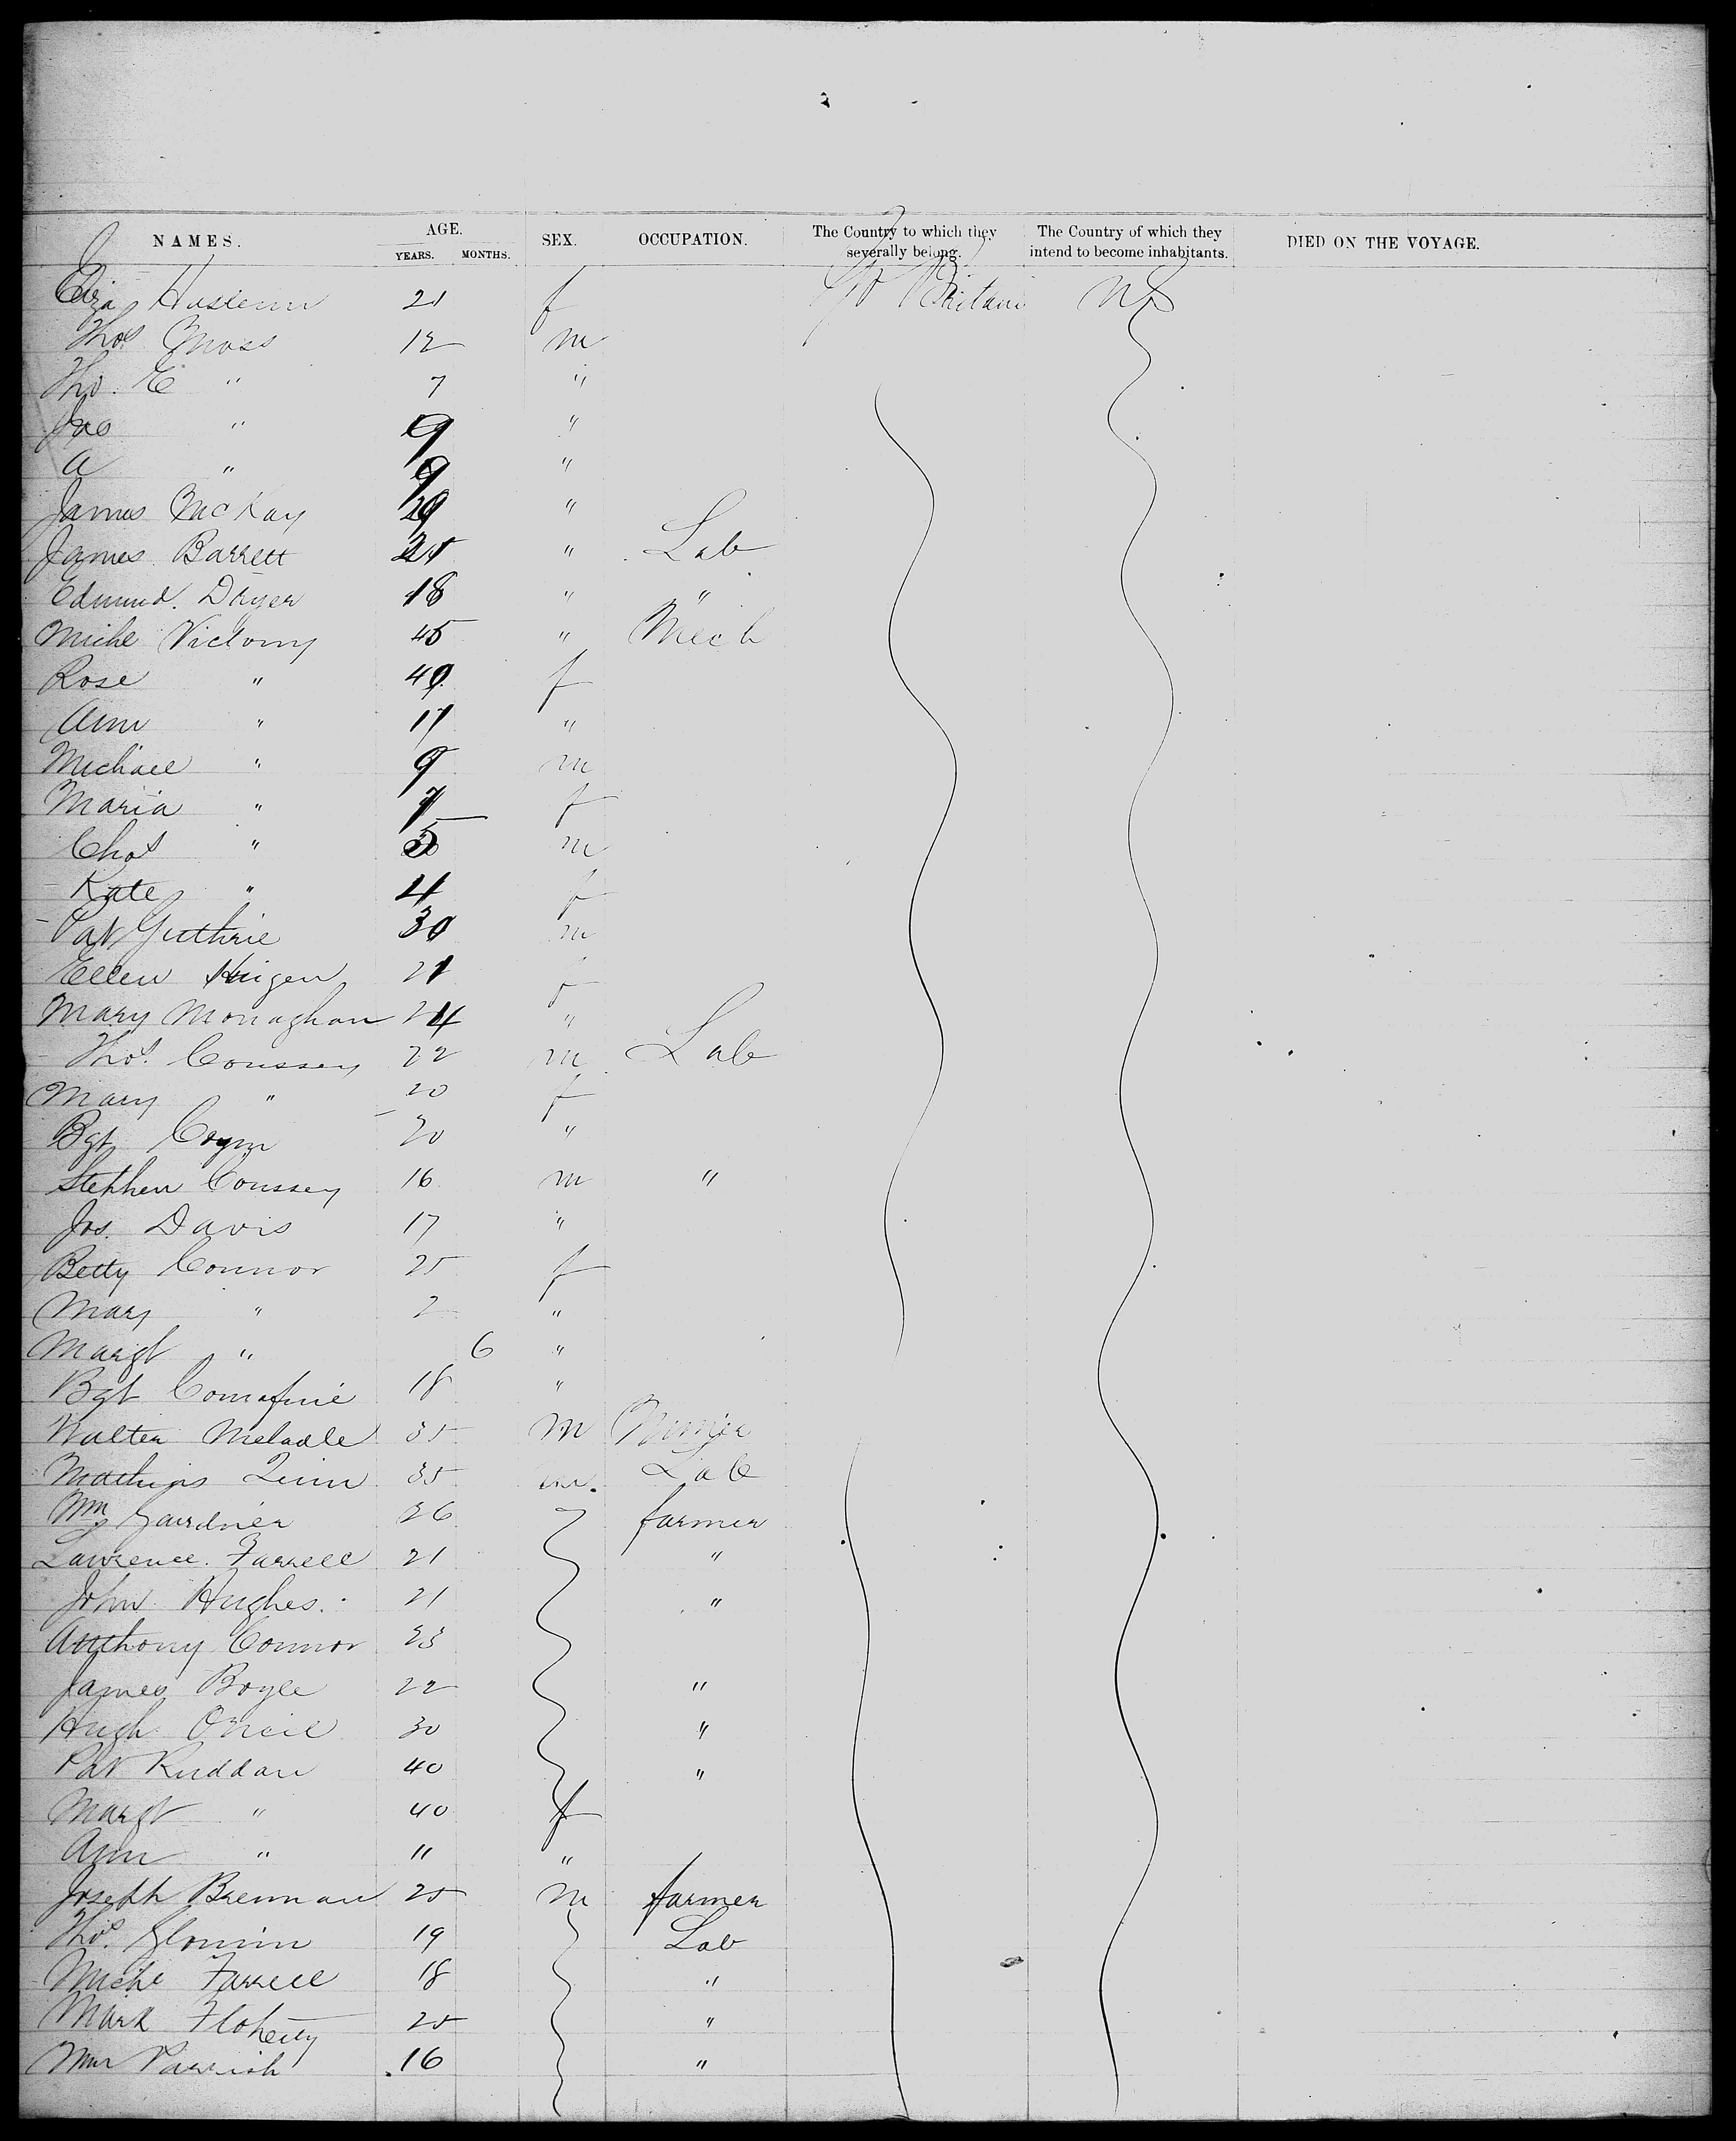 NAMES. AGE. YEARS. MONTHS. SEX. OCCUPATION. The Country to which they severally belong. The Country of which they intend to become inhabitants. DIED ON THE VOYAGE.
Eliza 21 f Gt Britain US
Thos Moss 12 m
Tho. E " 7 "
Jas " 9 "
A " 9 "
James McKay 29 "
James Barrett 21 " Lab
Edmund. Dwyer 18 " "
Michl Victory 45 " Mech
Rose " 49 f
Ann " 11 "
Michael " 9 m
Maria " 7 f
Chas " 5 m
Kate " 4 f
Pat Guthrie 30 m
Ellen 21 f
Mary Monaghan 24 "
Thos. Coussey 22 m Lab
Mary " 20 f
Bgt 20 "
Stephen Coussey 16 m "
Jos. Davis 17 "
Betty Connor 25 f
Mary " 2 "
Margt " 6 "
Bgt 18 "
Walter 35 m Miner
Mathias Quinn 35 m. Lab
Wm Gardner 26 farmer
Lawrence. Farrell 21 "
John Hughes. 21 "
Anthony Connor 23
James Boyle 22 "
Hugh O'Neil 30 "
Pat Ruddan 40 "
Margt " 40 f
Ann " 11 "
Joseph Brennan 25 m farmer
Tho. 19 Lab
Michl Farrell 18 "
Mark Floherty 25 "
Wm Parrish 16 "